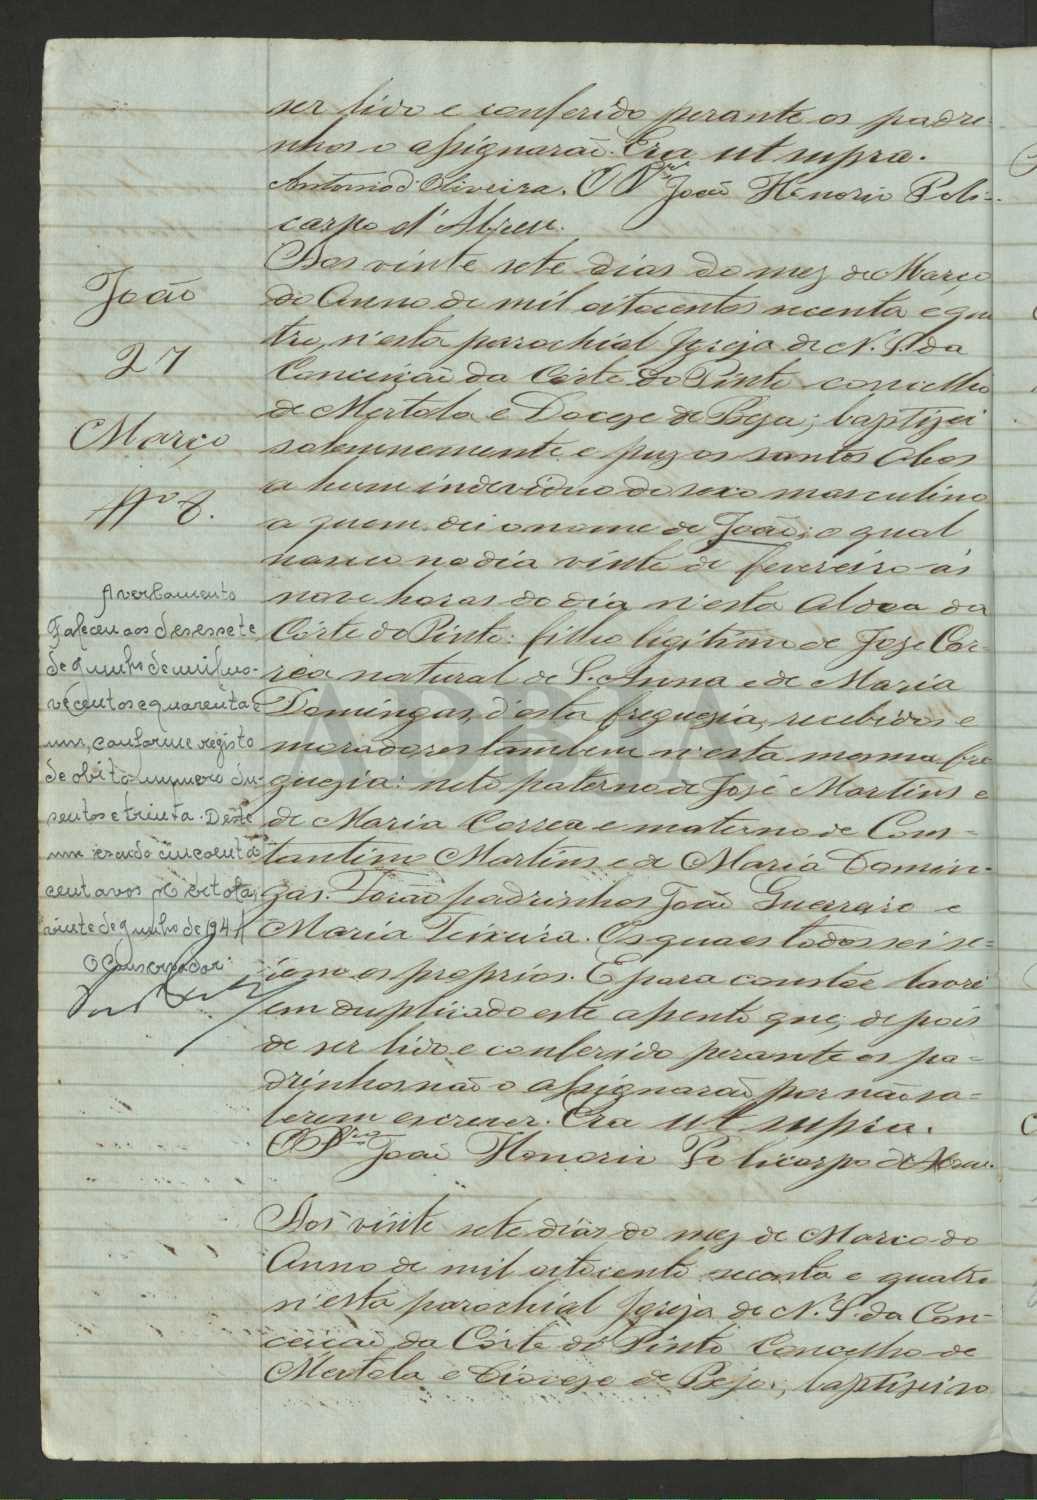 ser lido e conferido perante os padri-
nhos o assignarão. Era ut supra.
Antonio d'Oliveira. O P.or João Honorio Poli-
carpo d'Abreu.
João
27
Março
Nº 8.
Aos vinte sete dias do mez de Março
do Anno de mil oitocentos secenta e qua
tro, n'esta parochial Igreja de N. S. da
Conceição da Côrte do Pinto concelho
de Mertola e Docese de Beja; baptizei
solemnemente e puz os santos Oleos
a hum individuo do sexo masculino
a quem dei o nome de João; o qual
nasceo no dia vinte de fevereiro ás
nove horas do dia n'esta Aldea da
Côrte do Pinto: filho legitimo de José Cor-
rea natural de S. Anna e de Maria
Domingas, d'esta freguezia, recebidos e
moradores tambem n'esta mesma fre
guezia: neto paterno de José Martins e
de Maria Correa e materno de Cons-
tantino Martins e de Maria Domin-
gas. Forão padrinhos João Guerreiro e
Maria Teixeira. Os quaes todos sei se-
rem os proprios. E para constar lavrei
em duplicado este assento que, depois
de ser lido e conferido perante os pa-
drinhos não o assignarão por não sa-
berem escrever. Era ut supra.
O P.or João Honorio Policarpo d'Abreu.
Averbamento
Faleceu aos desessete
de Junho de mil no-
vecentos e quarenta e
um, conforme registo
de obito numero du-
sentos e trinta. Deste
um escudo cincoenta
centavos Mertola,
vinte de Junho de 1941
O Conservador:
Aos vinte sete dias do mez de Março do
Anno de mil oitocentos secenta e quatro
n'esta parochial Igreja de N. S. da Con-
ceição da Côrte do Pinto Concelho de
Mertola e Diocese de Beja; baptizei so
ADBJA